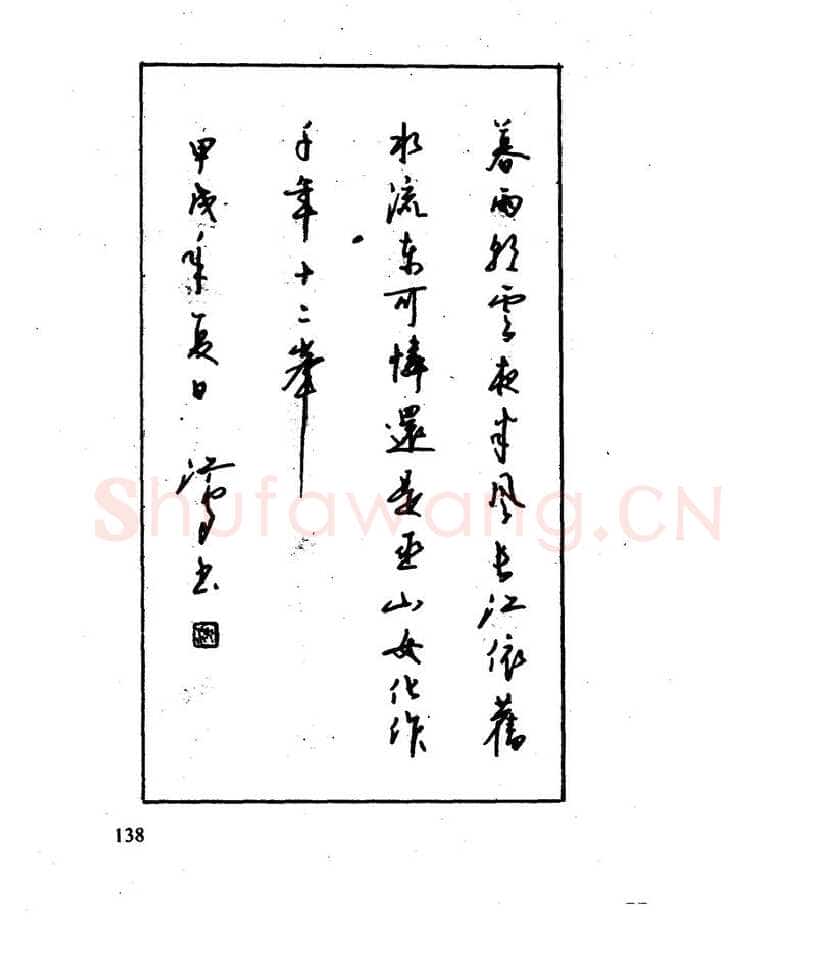 暮雨朝雲夜半风长江依舊
水流东可憐還是巫山女化作
千年十二峯
甲戌年夏日 书
138
Shufawang.CN